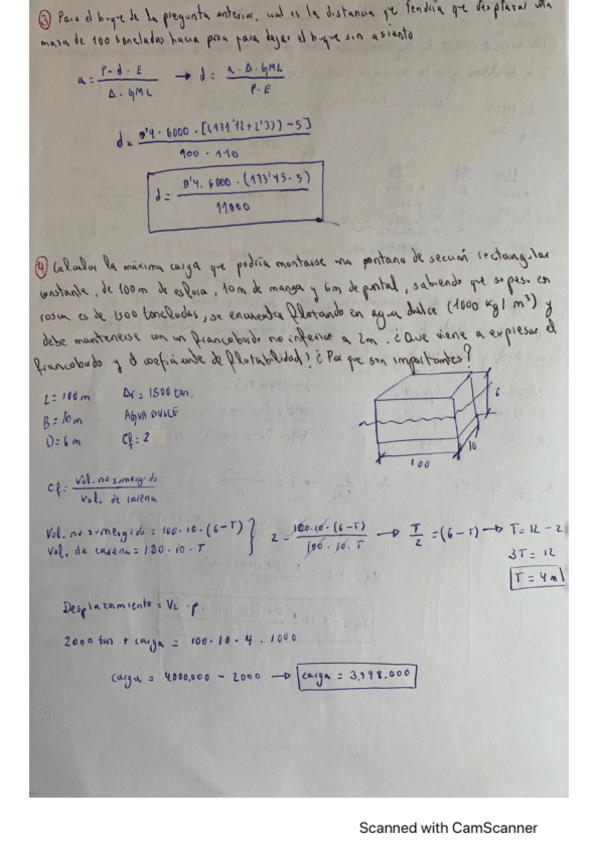 ③ Para el buque de la pregunta anterior, cual es la distancia qe tendría que desplazar una
masa de 100 toneladas hacia proa para dejar el buque sin asiento
a = P · d · E / Δ · GML → d = a · Δ · GML / P · E
d = 0'4 · 6000 · [(171'12 + 2'33) - 5] / 100 · 110
d = 0'4 · 6000 · (173'45 - 5) / 11000
④ Calcular la máxima carga que podría montarse una pontana de sección rectangular
constante, de 100m de eslora, 10m de manga y 6m de puntal, sabiendo que su peso en
rosca es de 1500 toneladas, se encuentra flotando en agua dulce (1000 kg / m³) y
debe mantenerse con un francobordo no inferior a 2m. ¿Que viene a expresar el
francobordo y el coeficiente de flotabilidad? ¿Por que son importantes?
L = 100m Δr = 1500 ton.
B = 10m AGUA DULCE
D = 6m Cf = 2
6
10
100
Cf = Vol. no sumergido / Vol. de carena
Vol. no sumergido = 100 · 10 · (6 - T)
Vol. de carena = 100 · 10 · T
2 = 100 · 10 · (6 - T) / 100 · 10 · T → T/2 = (6 - T) → T = 12 - 2
3T = 12
T = 4m
Desplazamiento = Vc · ρ
2000 ton + carga = 100 · 10 · 4 · 1000
carga = 4000.000 - 2000 → carga = 3.998.000
Scanned with CamScanner